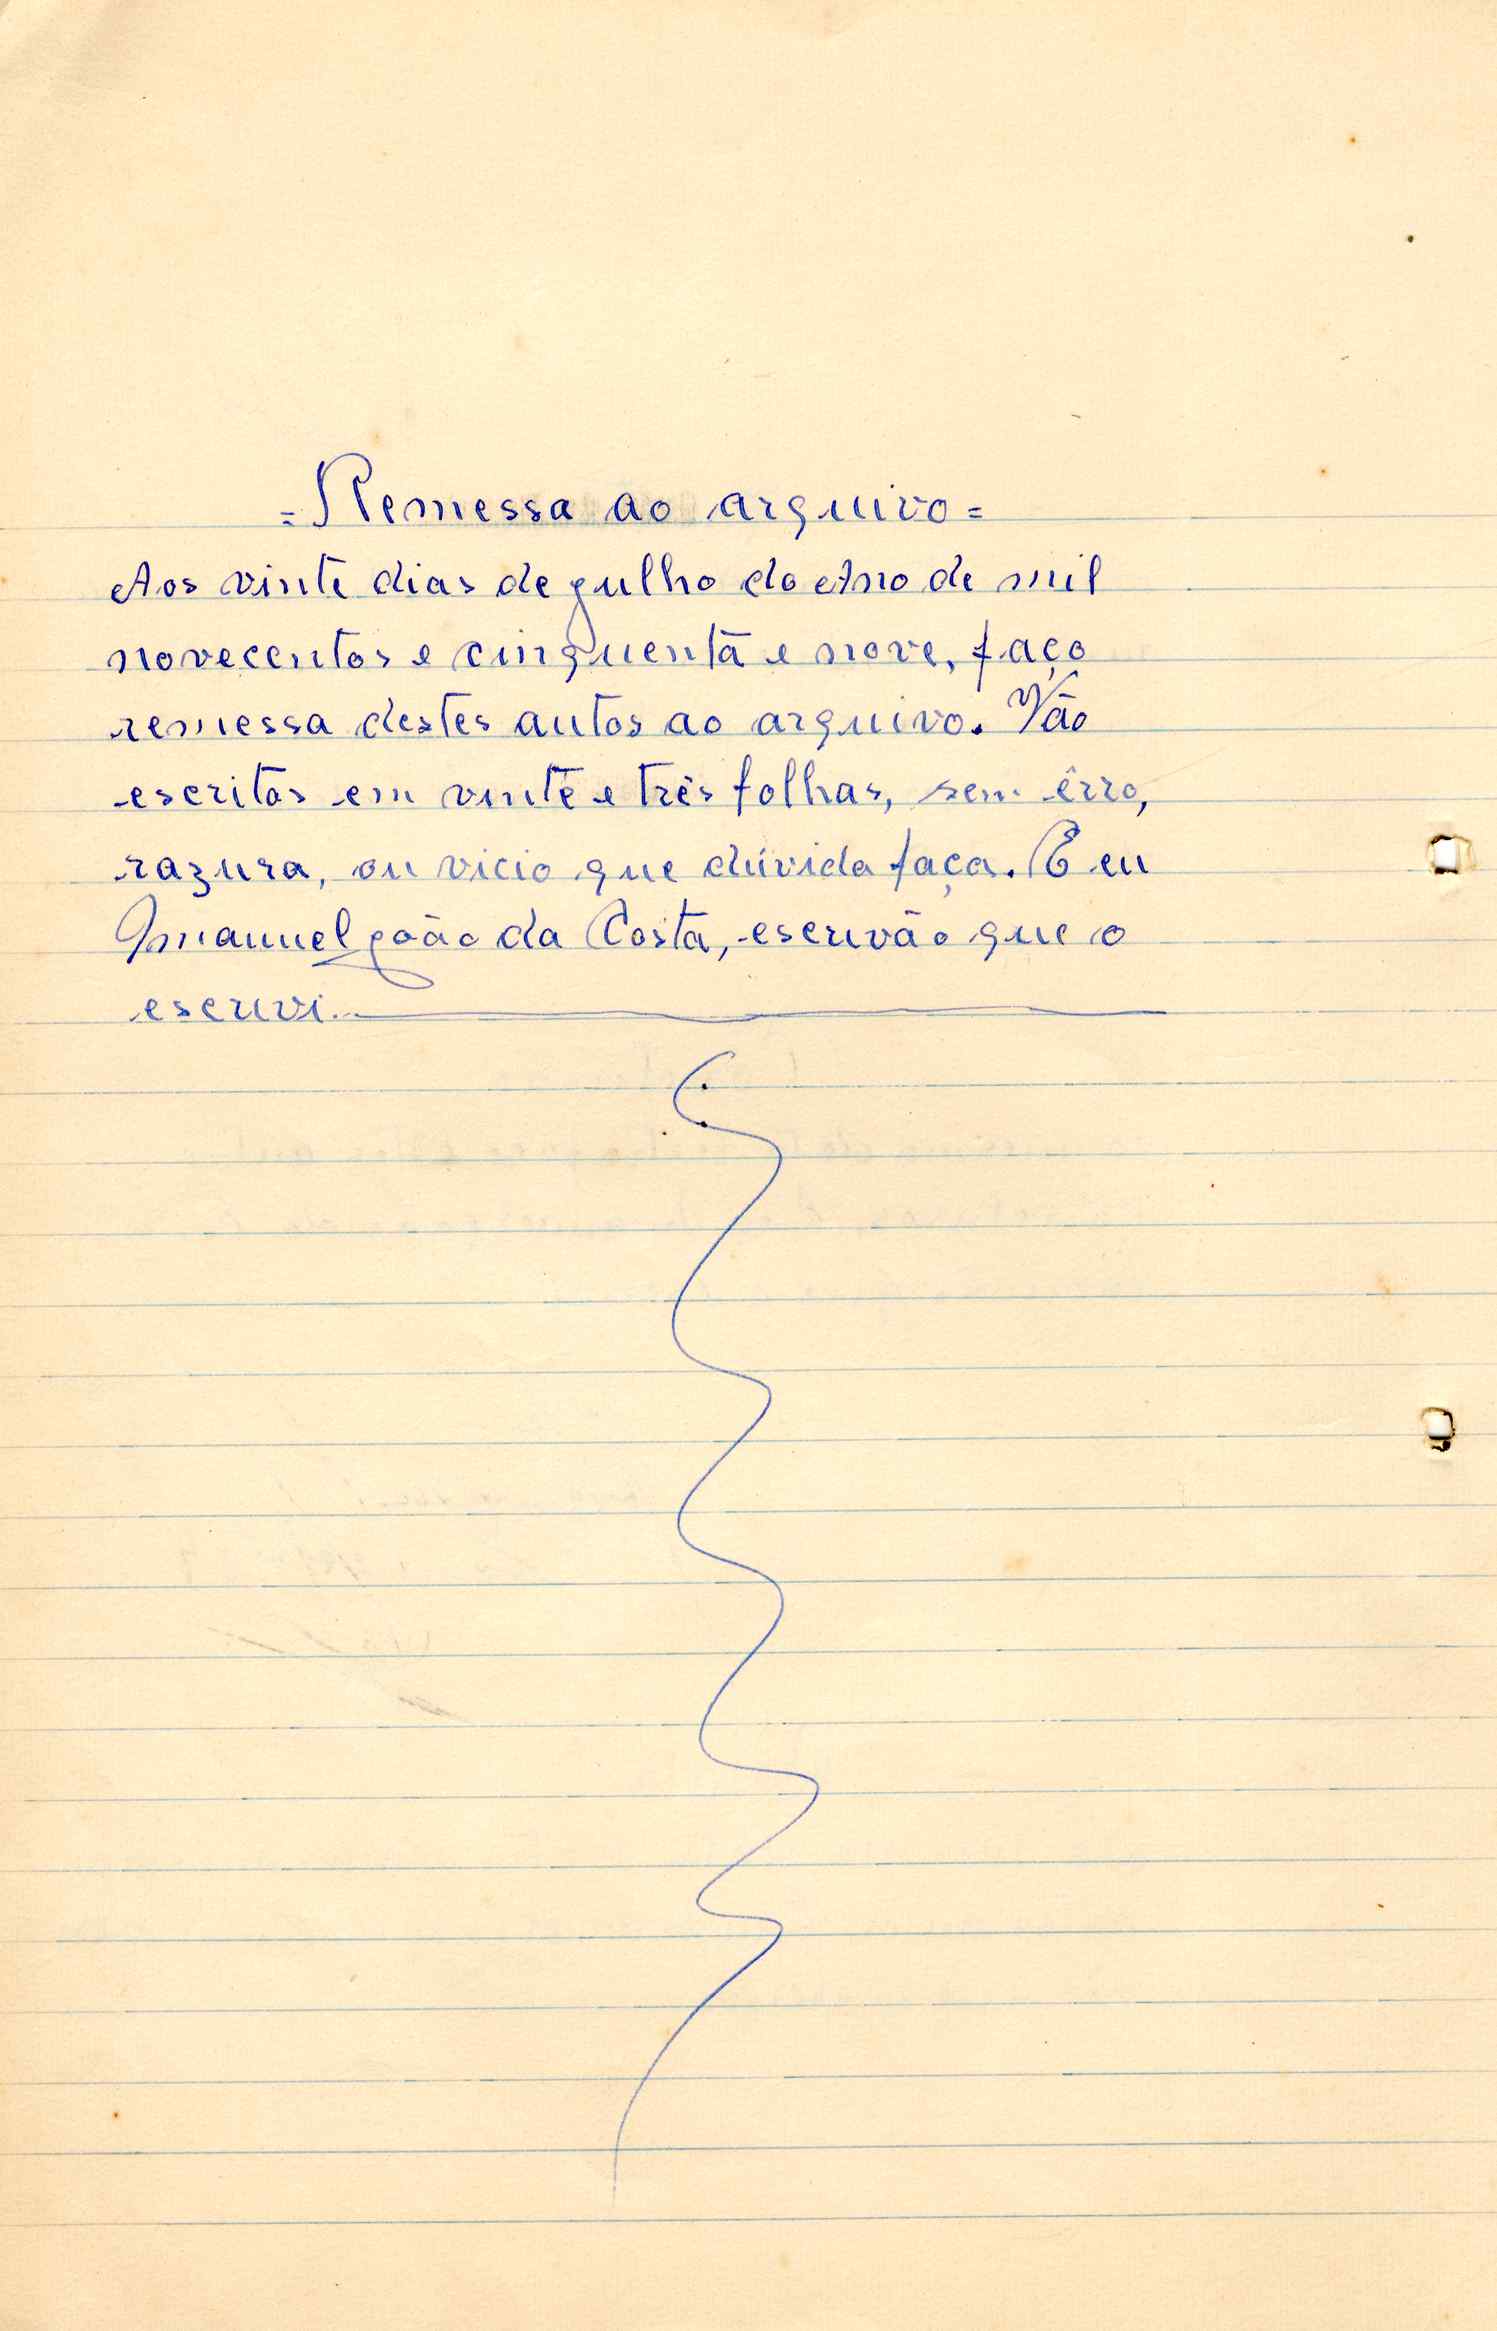 = Remessa ao arquivo =
Aos vinte dias de julho do Ano de mil
novecentos e cinquenta e nove, faço
remessa destes autos ao arquivo. Vão
escritos em vinte e três folhas, sem êrro,
razura, ou vicio que dúvida faça. E eu
Manuel João da Costa, escrivão que o
escrivi.